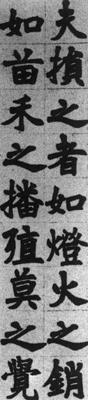 夫損之者如燈火之銷
如苗禾之播殖莫之覺